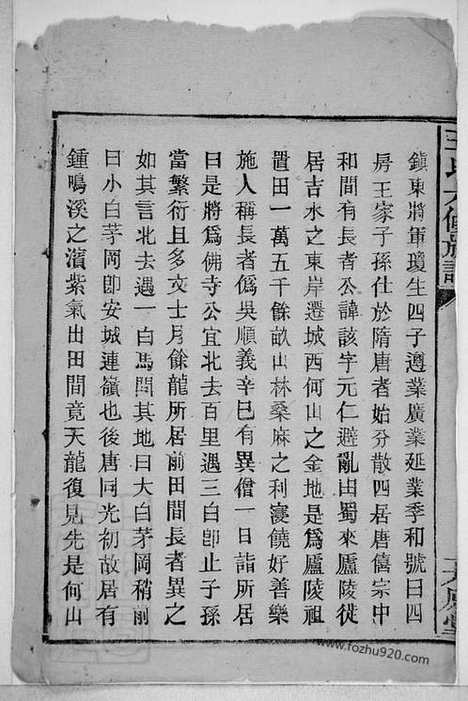 王氏大修族譜
鎮東將軍瓊生四子遵業廣業延業季和號曰四
房王家子孫仕於隋唐者始分散四居唐僖宗中
和間有長者公諱該字元仁避亂由蜀來廬陵徙
居吉水之東岸遷城西何山之金地是爲廬陵祖
置田一萬五千餘畝山林桑麻之利寖饒好善樂
施人稱長者僞吳順義辛巳有異僧一日詣所居
曰是將爲佛寺公宜北去百里遇三白卽止子孫
當繁衍且多文士月餘龍所居前田間長者異之
如其言北去遇一白馬問其地曰大白茅岡稍前
曰小白茅岡卽安城連嶺也後唐同光初故居有
鍾鳴溪之濱紫氣出田間竟天龍復見先是何山
www.fozhu920.com